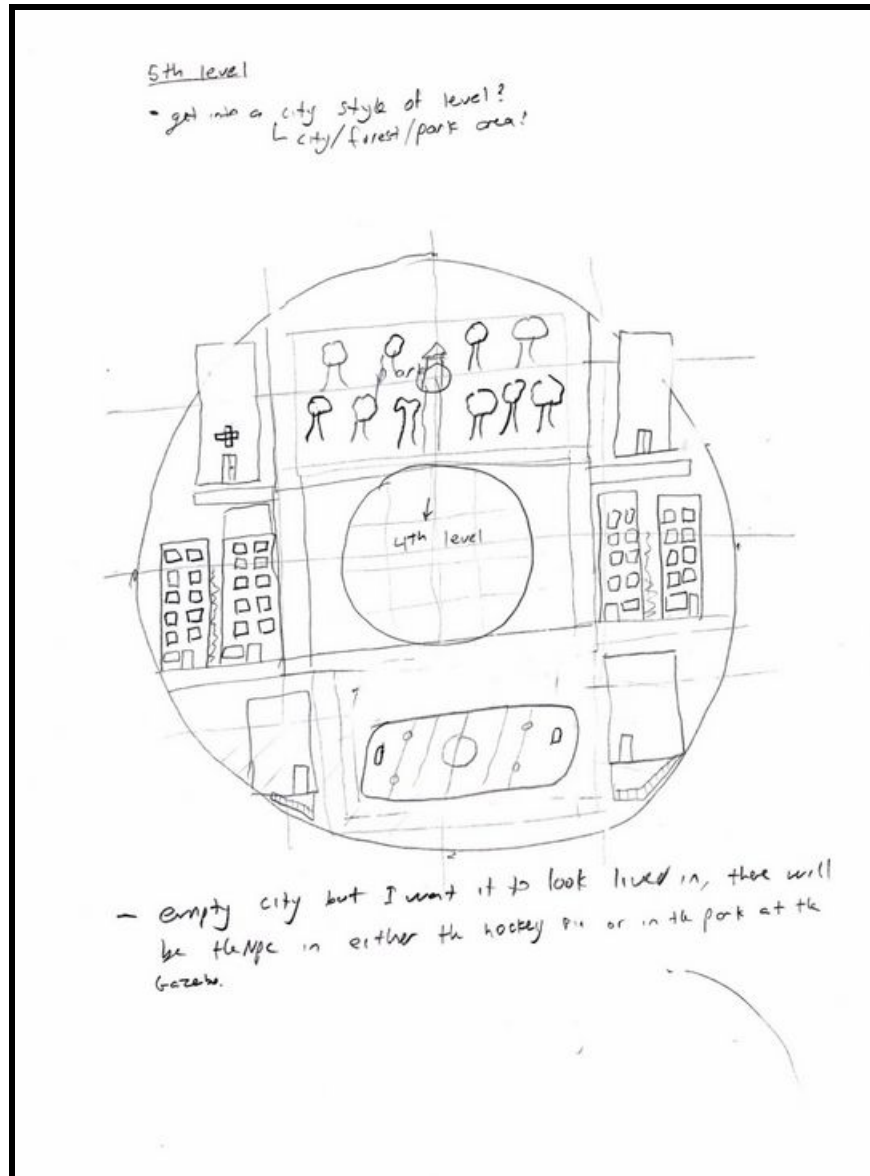 5th level
- get into a city style of level?
city/forest/park area?
park
4th level
- empty city but I want it to look lived in, there will
be the NPC in either the hockey or in the park at the
Gazebo.